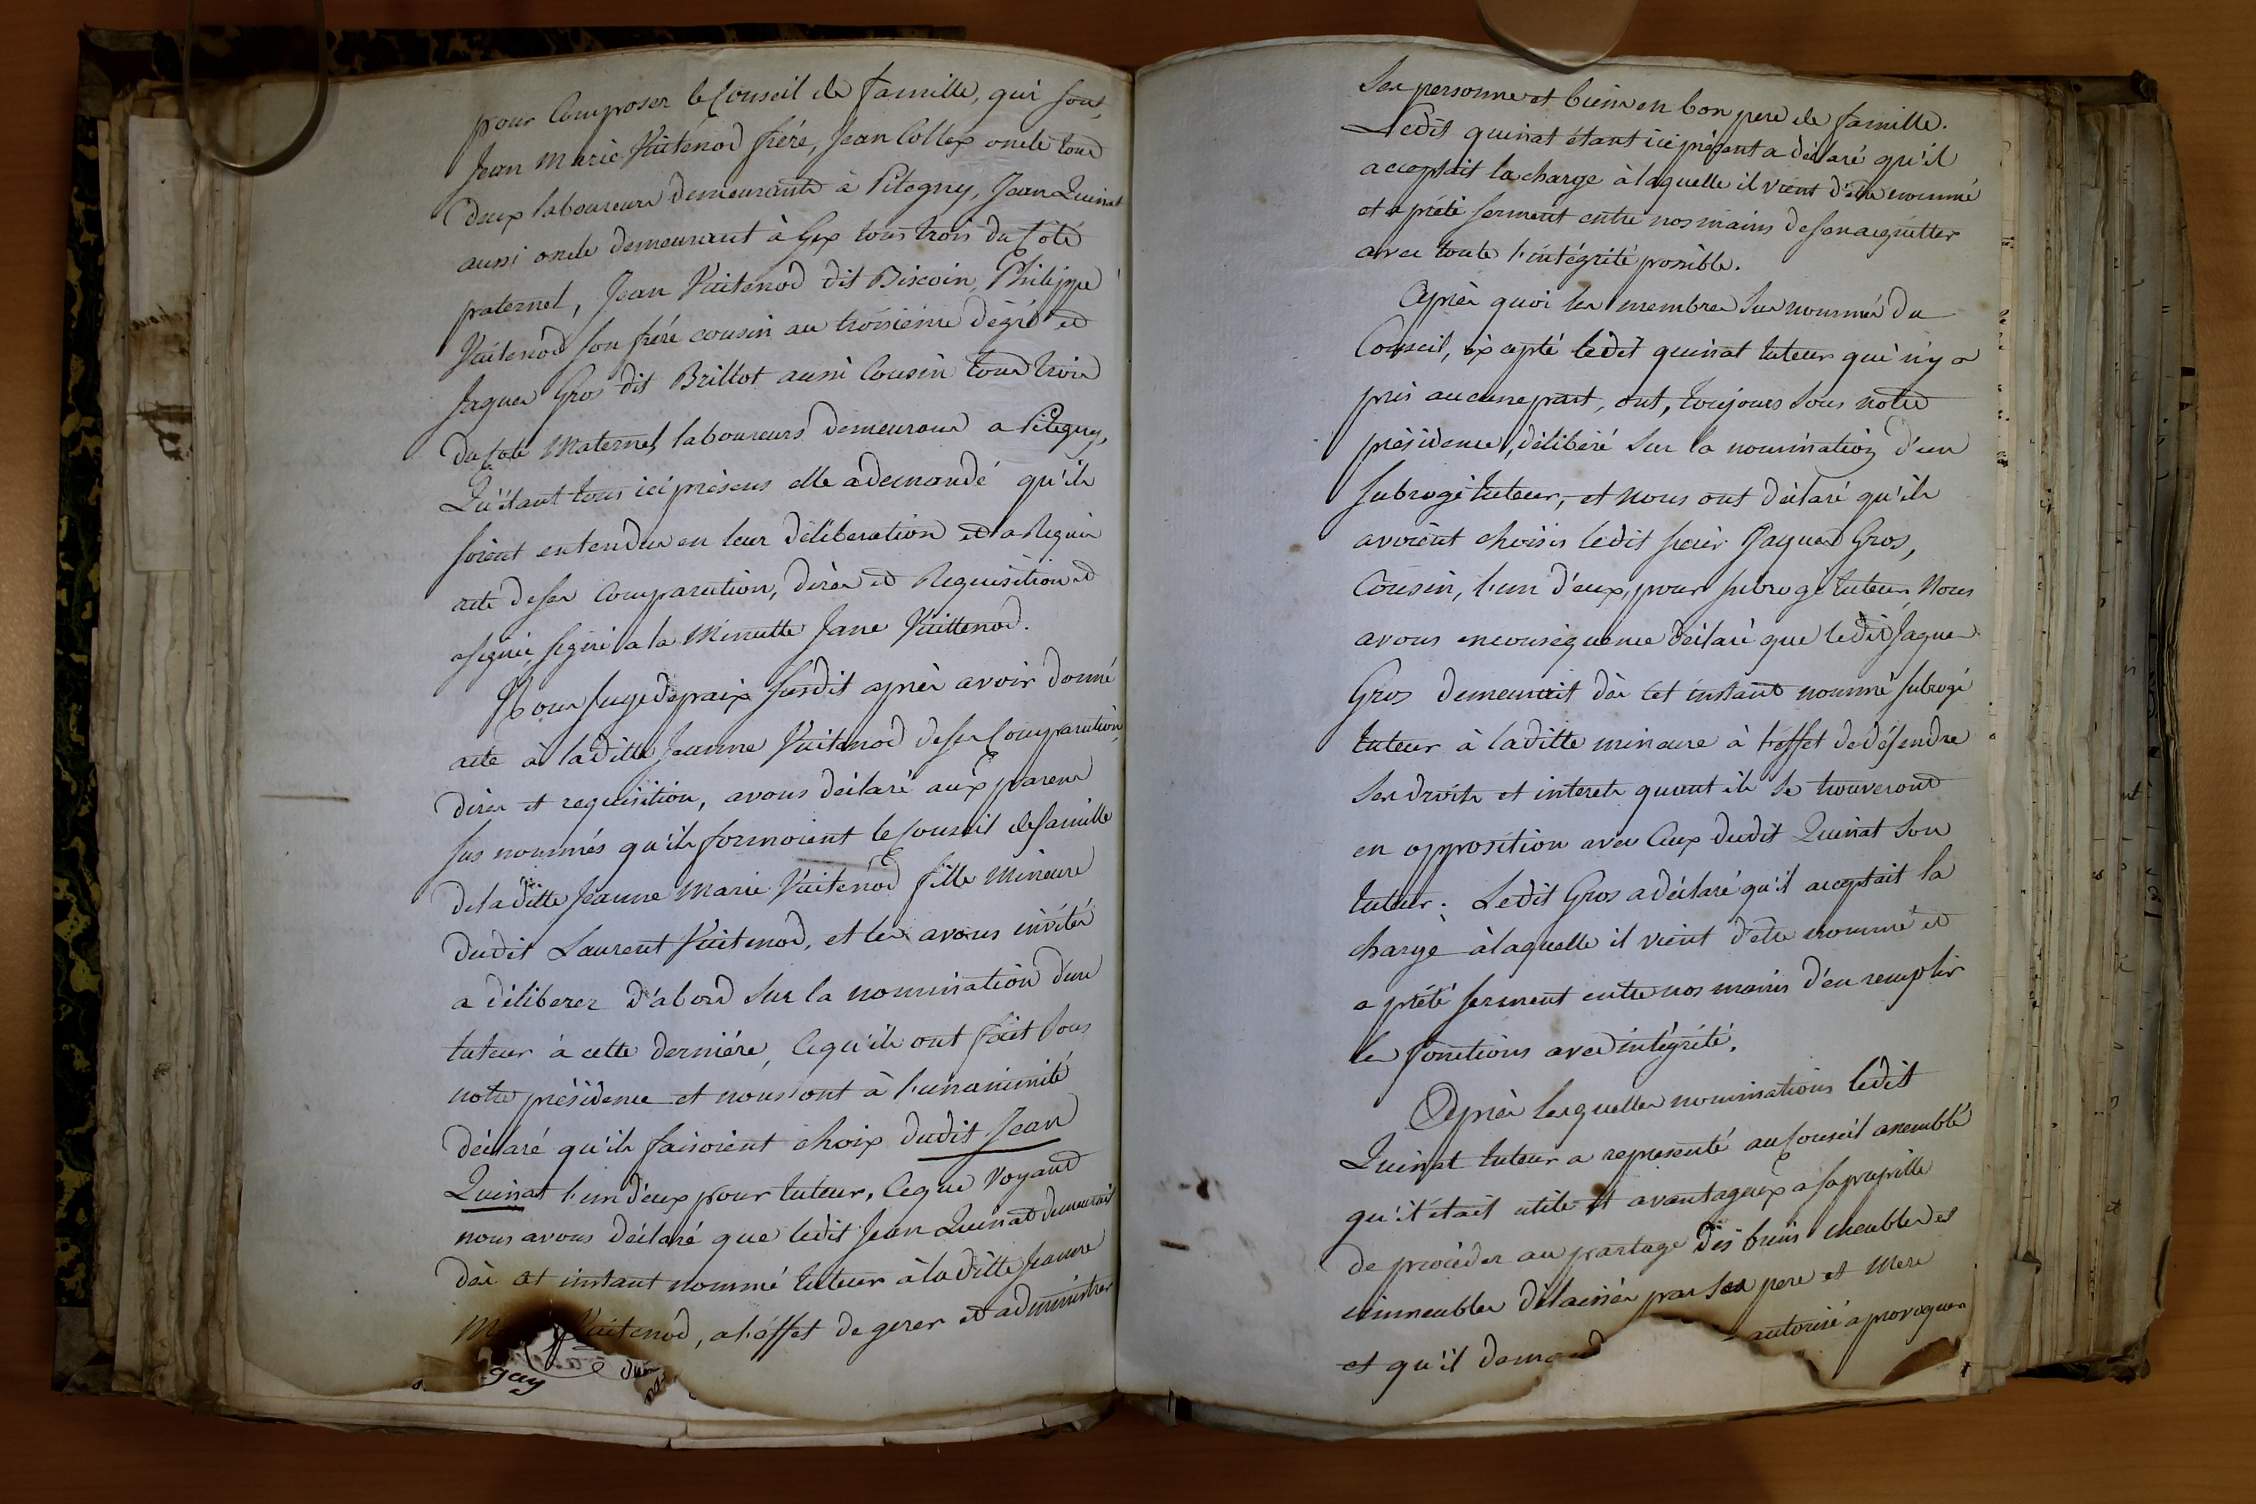 pour Composer le Conseil de famille, qui sont,
Jean Marie Vuitenod frére, Jean Collex oncle tous
deux laboureurs demeurants à Pitegny, Jean Quinat
aussi oncle demeurant à Gex tous trois du Coté
paternel, Jean Vuitenod dit Biscoin, Philippe
Vuitenod son frére cousin au troisieme dégré et
Jaques Gros dit Brillot aussi Cousin tous trois
du Coté Maternel, laboureurs demeurans a Pitegny,
Qu'étant tous ici présens elle a demandé qu'ils
soient entendus en leur déliberation et a Requis
acte de ses Comparution, dires et Requisition et
signé, signé a la Minutte Jane Vuittenod.
Nous Juge de paix susdit après avoir donné
acte à la ditte Jeanne Vuitenod de ses Comparution,
dires et requisition, avons déclaré aux parens
sus nommés qu'ils formoient le Conseil de famille
de la ditte Jeanne Marie Vuitenod fille Mineure
dudit Laurent Vuitenod, et les avons invités
a déliberer d'abord sur la nomination d'un
tuteur à cette derniére, Ce qu'ils ont fait sous
notre présidence et nous ont à l'unanimité
déclaré qu'ils faisoient choix dudit Jean
Quinat l'un d'eux pour tuteur, Ce que Voyant
nous avons déclaré que ledit Jean Quinat demeurait
dès cet instant nommé tuteur à la ditte Jeanne
Vuitenod, a l'éffet de gerer et administrer
gay
ses personne et biens en bon pere de famille.
Ledit quinat étant ici présent a déclaré qu'il
acceptait la charge à laquelle il vient d'etre nommé
et a prété serment entre nos mains de s'en acquitter
avec toute l'intégrité possible.
Après quoi les membres sus nommés du
Conseil, éxcepté ledit quinat tuteur qui n'y a
pris aucune part, ont, toujours sous notre
présidence, déliberé sur la nomination d'un
subrogé tuteur, et nous ont déclaré qu'ils
avoient choisis ledit sieur Jaques Gros,
Cousin, l'un d'eux, pour subrogé tuteur, Nous
avons en conséquence déclaré que ledit Jaques
Gros demeurait dès cet instant nommé subrogé
tuteur à laditte mineure à l'éffet de défendre
ses droits et interets quant ils se trouveront
en opposition avec Ceux dudit Quinat son
tuteur. Ledit Gros a déclaré qu'il acceptait la
charge à laquelle il vient d'etre nommé et
a prété serment entre nos mains d'en remplir
les fonctions avec intégrité.
Après lesquelles nominations ledit
Quinat tuteur a representé au Conseil assemblé
qu'il était utile et avantageux a sa pupille
de procéder au partage des biens meubles et
immeubles délaissés par ses pere et Mere
et qu'il demand autorisé a provoquer